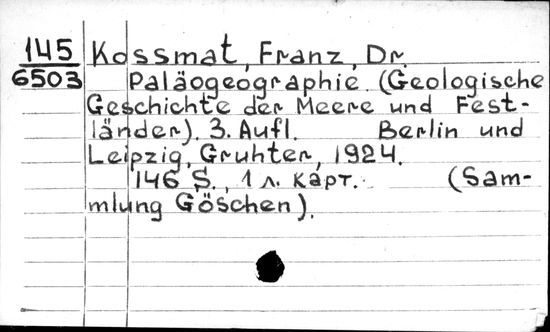 145 Kossmat, Franz, Dr.
6503 Paläogeographie. (Geologische
Geschichte der Meere und Fest-
länder). 3. Aufl. Berlin und
Leipzig, Gruhter, 1924.
146 S., 1 л. карт. (Sam-
mlung Göschen).